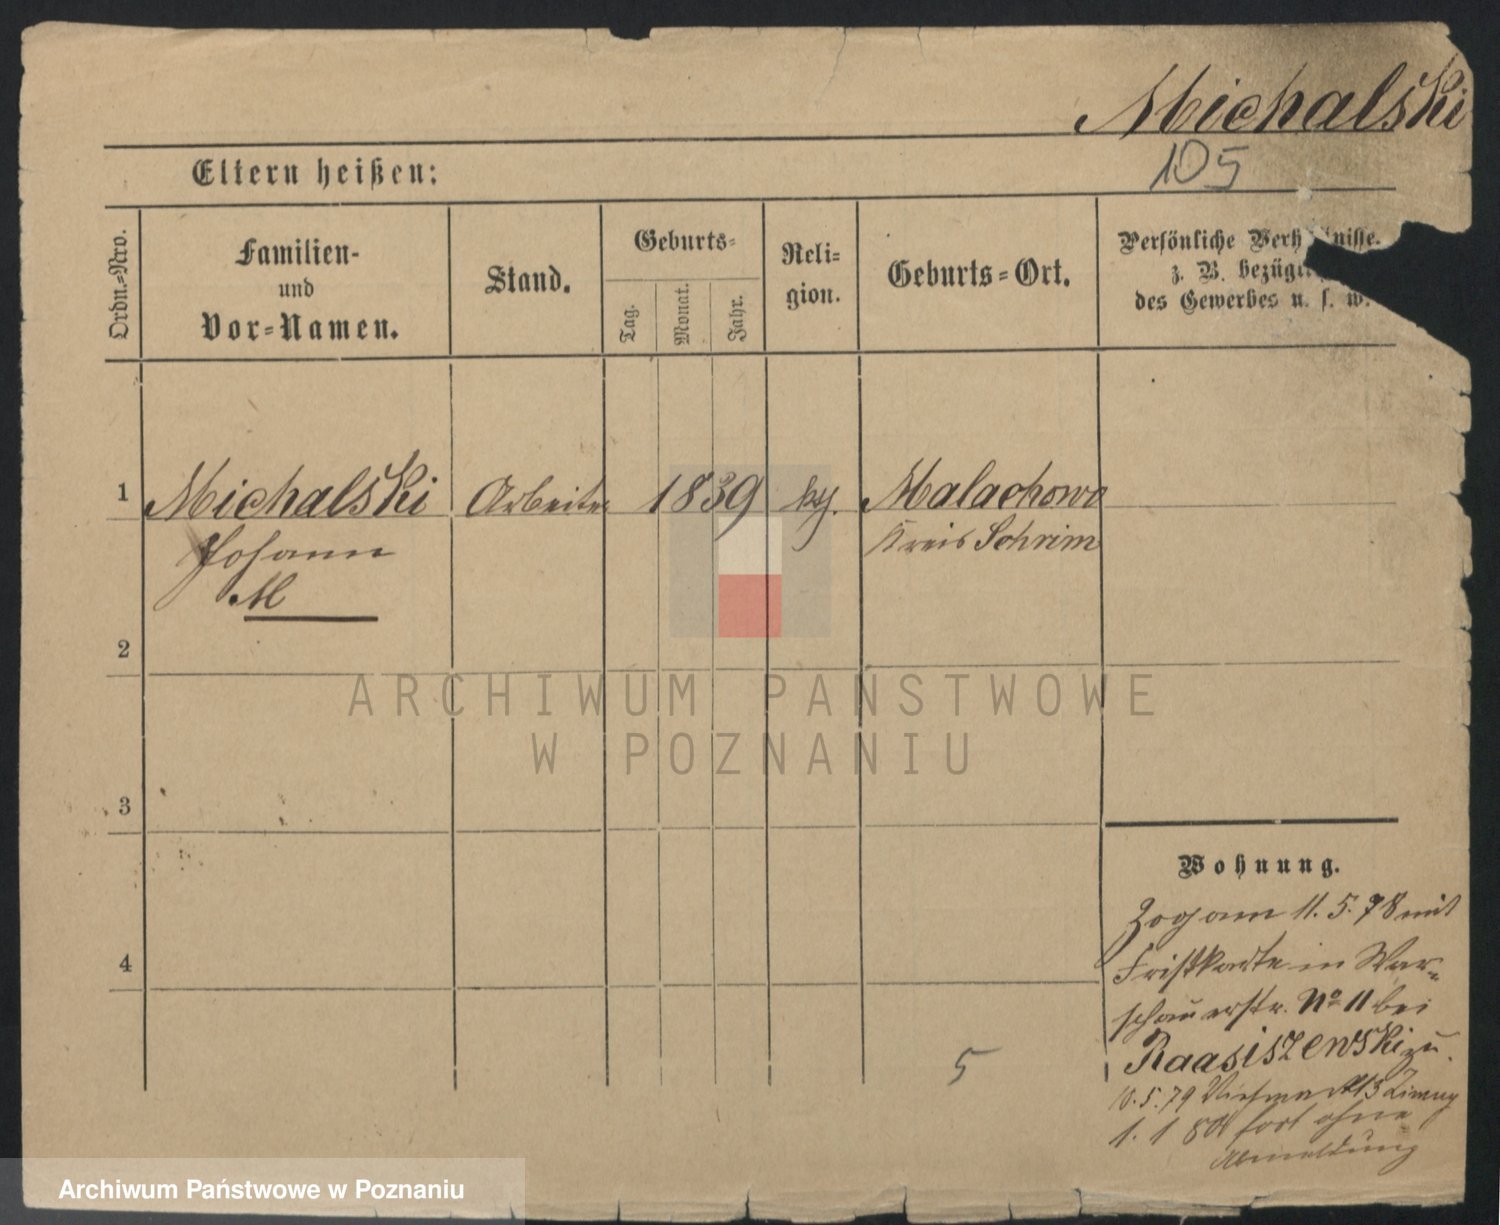 Michalski
105
Eltern heißen:
Ordn.-Nro.
Familien-
und
Vor-Namen.
Stand.
Geburts-
Tag.
Monat.
Jahr.
Reli-
gion.
Geburts-Ort.
Persönliche Verh nisse.
z. B. bezügl
des Gewerbes u. s. w.
1
Michalski
Johann
M
Arbeiter
1839
kg.
Malachowo
Kreis Schrim
2
3
4
5
Wohnung.
Zog am 11. 5. 78 mit
Fristkarte in War-
schauerstr. No 11 bei
Raasiszewski zu.
10. 5. 79 Viehmarkt 3
1. 1 80 fort ohne
Abmeldung
ARCHIWUM PAŃSTWOWE
W POZNANIU
Archiwum Państwowe w Poznaniu